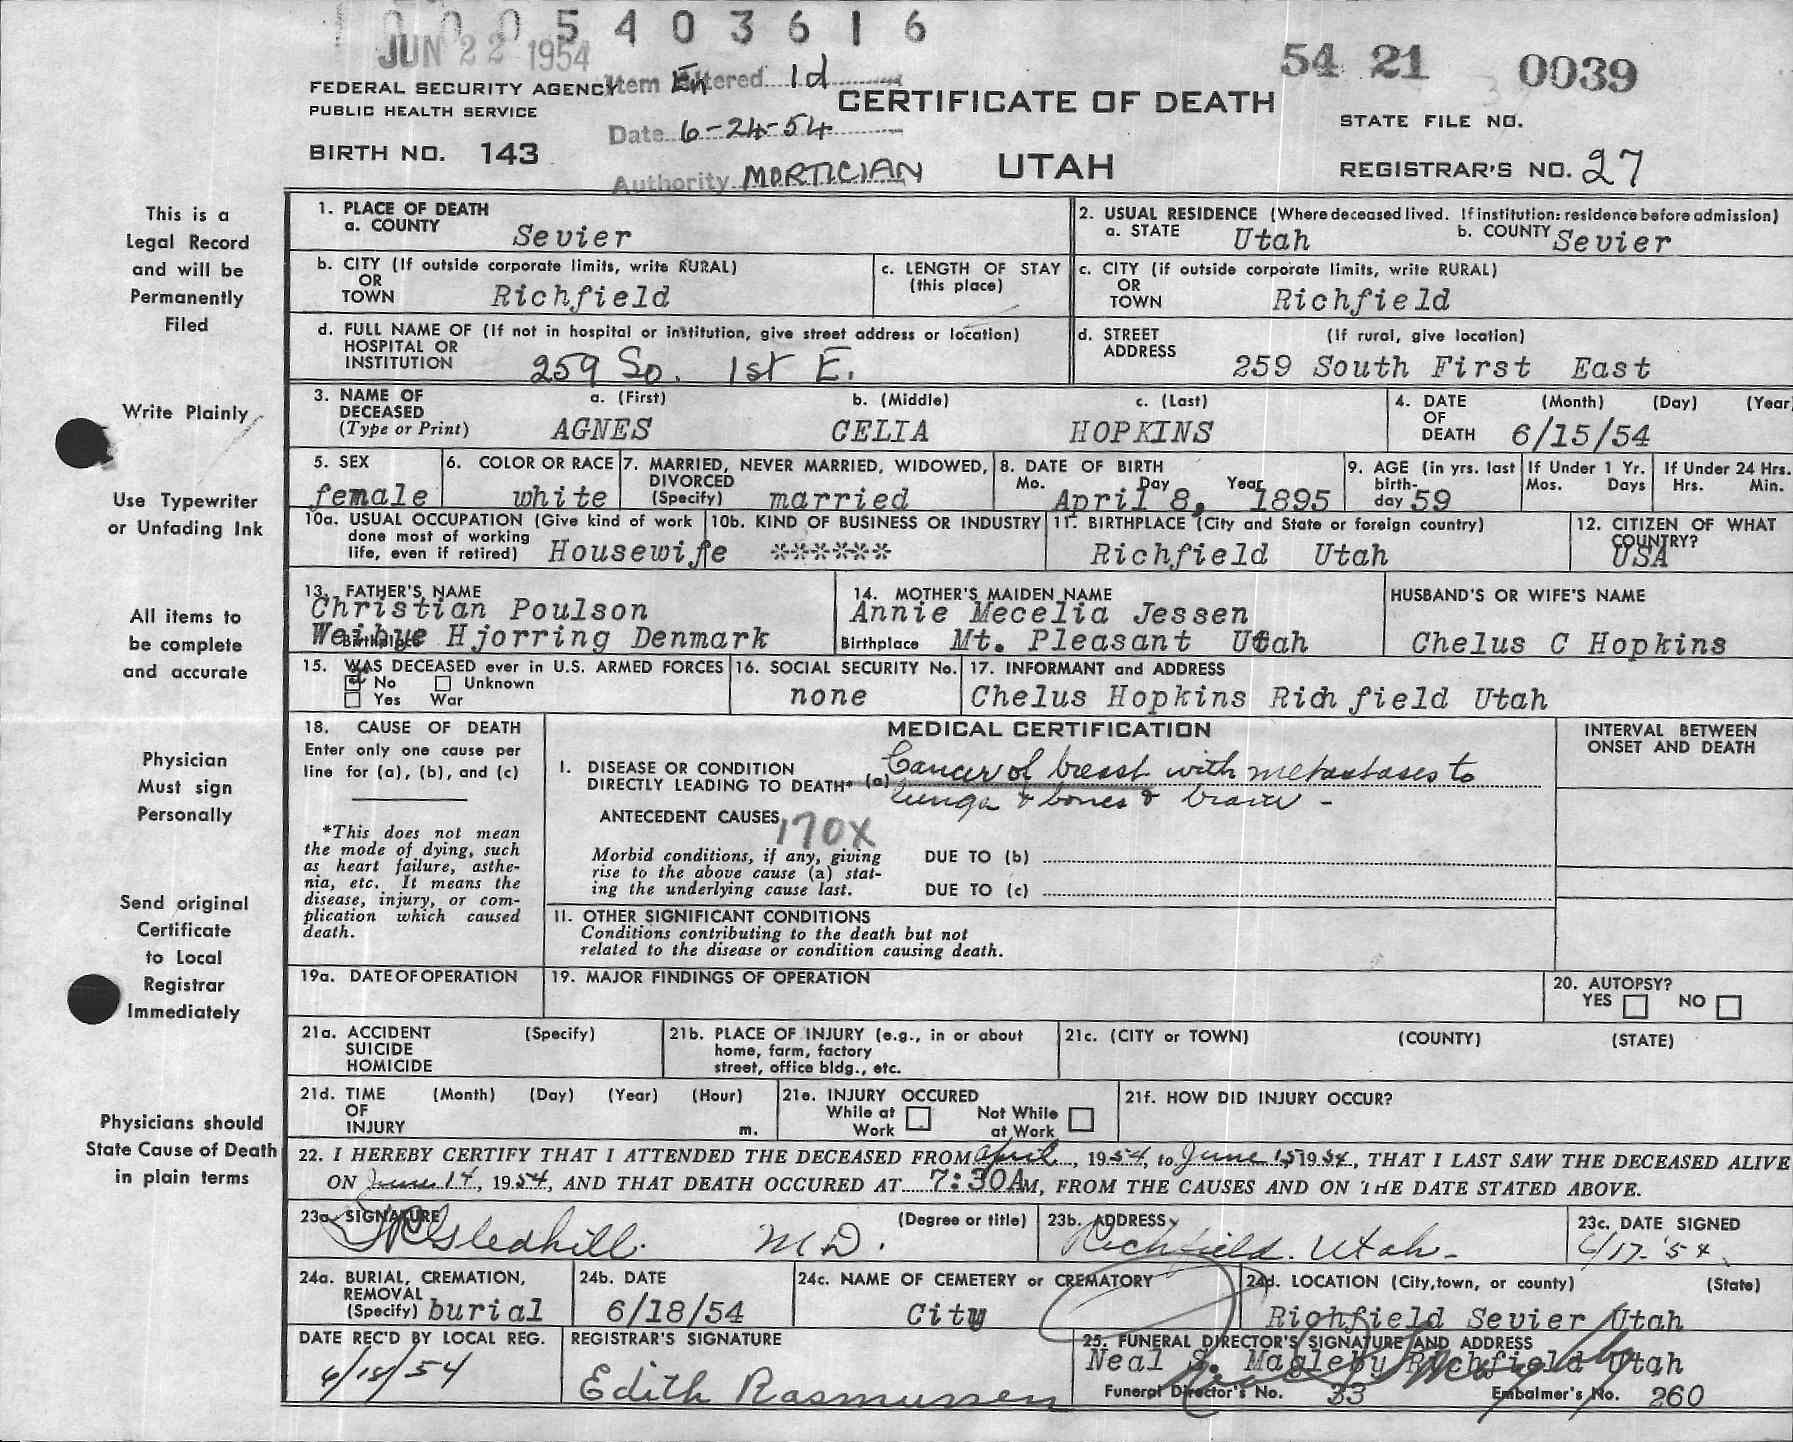 1 0 0 0 5 4 0 3 6 1 6
JUN 22 1954
54 21 0039
FEDERAL SECURITY AGENCY
PUBLIC HEALTH SERVICE
Item Entered 1d
Date 6-24-54
Authority MORTICIAN
CERTIFICATE OF DEATH
UTAH
STATE FILE NO.
BIRTH NO. 143
REGISTRAR'S NO. 27
This is a
Legal Record
and will be
Permanently
Filed
Write Plainly
Use Typewriter
or Unfading Ink
All items to
be complete
and accurate
Physician
Must sign
Personally
Send original
Certificate
to Local
Registrar
Immediately
Physicians should
State Cause of Death
in plain terms
1. PLACE OF DEATH
a. COUNTY Sevier
2. USUAL RESIDENCE (Where deceased lived. If institution: residence before admission)
a. STATE Utah b. COUNTY Sevier
b. CITY (If outside corporate limits, write RURAL)
OR
TOWN Richfield
c. LENGTH OF STAY
(this place)
c. CITY (if outside corporate limits, write RURAL)
OR
TOWN Richfield
d. FULL NAME OF (If not in hospital or institution, give street address or location)
HOSPITAL OR
INSTITUTION 259 So. 1st E.
d. STREET (If rural, give location)
ADDRESS 259 South First East
3. NAME OF a. (First) b. (Middle) c. (Last)
DECEASED
(Type or Print) AGNES CELIA HOPKINS
4. DATE (Month) (Day) (Year
OF
DEATH 6/15/54
5. SEX
female
6. COLOR OR RACE
white
7. MARRIED, NEVER MARRIED, WIDOWED,
DIVORCED
(Specify) married
8. DATE OF BIRTH
Mo. Day Year
April 8, 1895
9. AGE (in yrs. last
birth-
day 59
If Under 1 Yr.
Mos. Days
If Under 24 Hrs.
Hrs. Min.
10a. USUAL OCCUPATION (Give kind of work
done most of working
life, even if retired) Housewife
10b. KIND OF BUSINESS OR INDUSTRY
******
11. BIRTHPLACE (City and State or foreign country)
Richfield Utah
12. CITIZEN OF WHAT
COUNTRY?
USA
13. FATHER'S NAME
Christian Poulson
Birthplace Weibye Hjorring Denmark
14. MOTHER'S MAIDEN NAME
Annie Mecelia Jessen
Birthplace Mt. Pleasant Utah
HUSBAND'S OR WIFE'S NAME
Chelus C Hopkins
15. WAS DECEASED ever in U.S. ARMED FORCES
No Unknown
Yes War
16. SOCIAL SECURITY No.
none
17. INFORMANT and ADDRESS
Chelus Hopkins Richfield Utah
18. CAUSE OF DEATH
Enter only one cause per
line for (a), (b), and (c)
*This does not mean
the mode of dying, such
as heart failure, asthe-
nia, etc. It means the
disease, injury, or com-
plication which caused
death.
MEDICAL CERTIFICATION
INTERVAL BETWEEN
ONSET AND DEATH
I. DISEASE OR CONDITION
DIRECTLY LEADING TO DEATH* (a) Cancer of breast with metastases to
lungs & bones & brain -
ANTECEDENT CAUSES 170X
Morbid conditions, if any, giving
rise to the above cause (a) stat-
ing the underlying cause last.
DUE TO (b)
DUE TO (c)
II. OTHER SIGNIFICANT CONDITIONS
Conditions contributing to the death but not
related to the disease or condition causing death.
19a. DATE OF OPERATION
19. MAJOR FINDINGS OF OPERATION
20. AUTOPSY?
YES NO
21a. ACCIDENT (Specify)
SUICIDE
HOMICIDE
21b. PLACE OF INJURY (e.g., in or about
home, farm, factory
street, office bldg., etc.
21c. (CITY or TOWN) (COUNTY) (STATE)
21d. TIME (Month) (Day) (Year) (Hour)
OF
INJURY m.
21e. INJURY OCCURED
While at Work
Not While at Work
21f. HOW DID INJURY OCCUR?
22. I HEREBY CERTIFY THAT I ATTENDED THE DECEASED FROM April, 1954, to June 15, 1954, THAT I LAST SAW THE DECEASED ALIVE
ON June 14, 1954, AND THAT DEATH OCCURED AT 7:30AM, FROM THE CAUSES AND ON THE DATE STATED ABOVE.
23a. SIGNATURE (Degree or title)
Gledhill. M.D.
23b. ADDRESS
Richfield. Utah-
23c. DATE SIGNED
6/17-'54
24a. BURIAL, CREMATION,
REMOVAL
(Specify) burial
24b. DATE
6/18/54
24c. NAME OF CEMETERY or CREMATORY
City
24d. LOCATION (City, town, or county) (State)
Richfield Sevier Utah
DATE REC'D BY LOCAL REG.
6/18/54
REGISTRAR'S SIGNATURE
Edith Rasmussen
25. FUNERAL DIRECTOR'S SIGNATURE AND ADDRESS
Neal S. Magleby Richfield Utah
Funeral Director's No. 33 Embalmer's No. 260